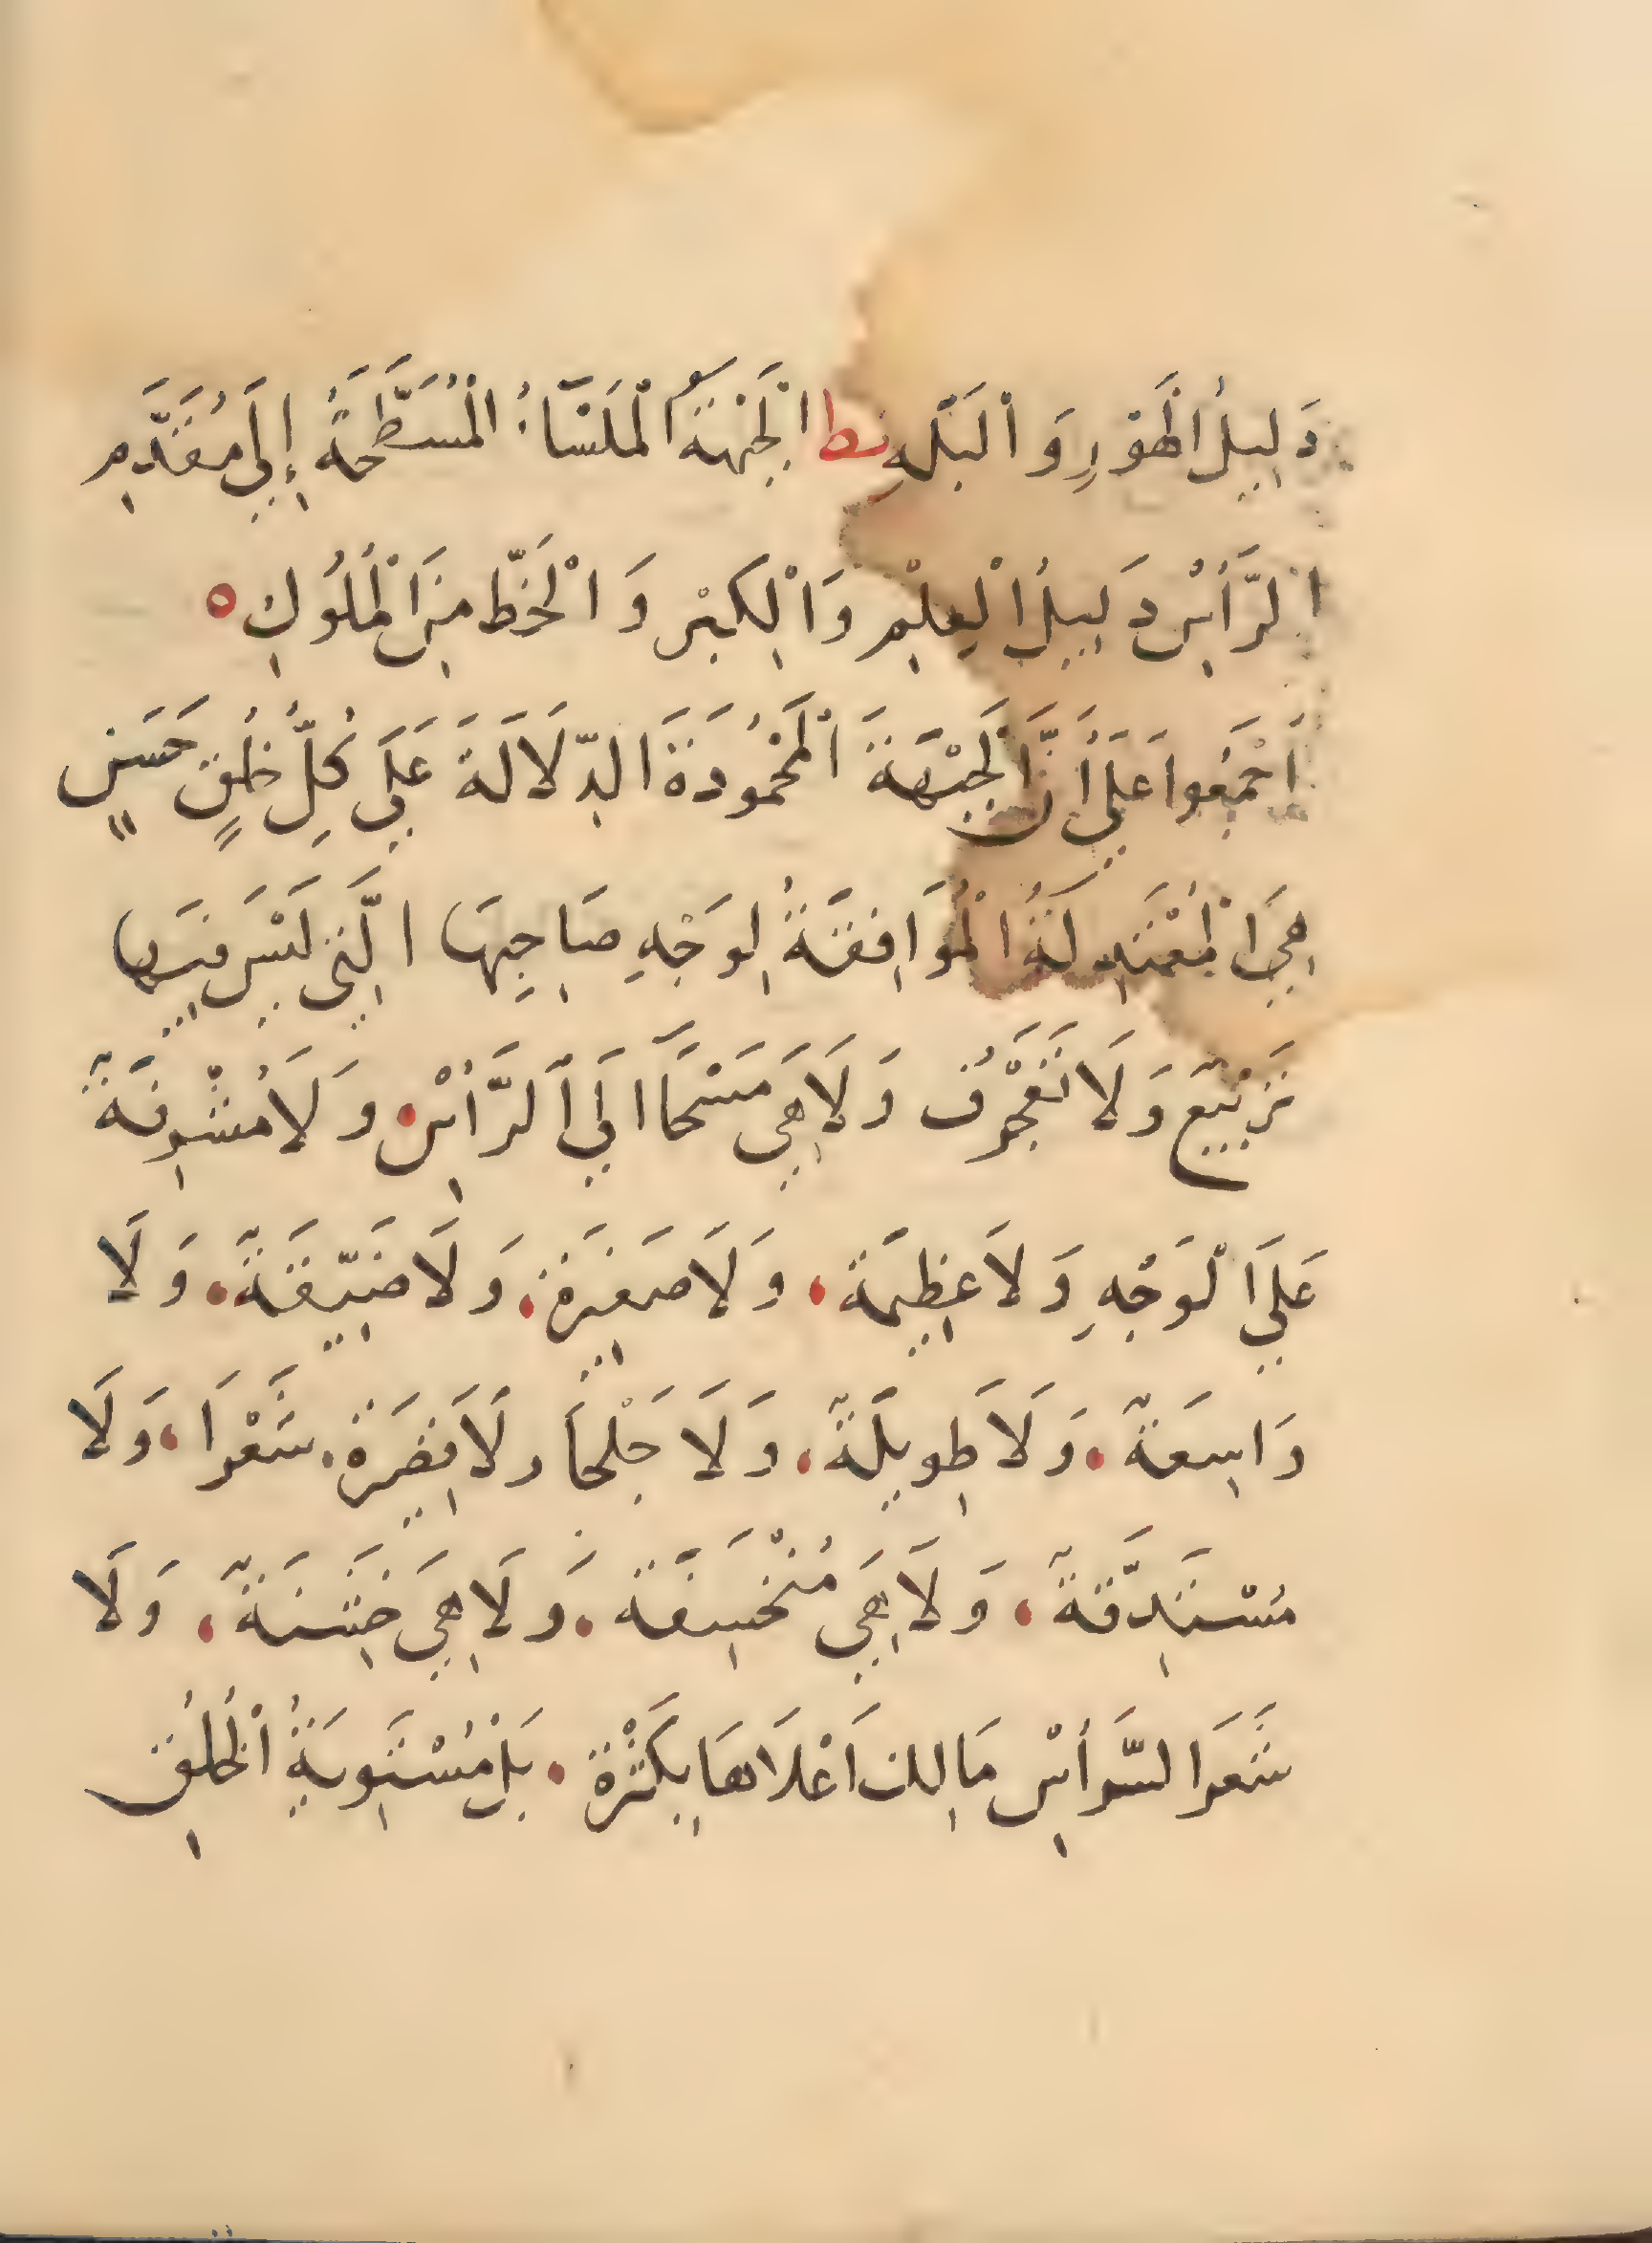 دَلِيلُ الْهَوَرِ وَالْبَلَهِ نط الْجَبْهَةُ الْمَلْسَآءُ الْمُسَطَّحَةُ إِلَي مُقَدَّمِ
الرَّأْسِ دَلِيلُ الْعِلْمِ وَالْكِبْرِ وَالْحَظِّ مِنَ الْمُلُوكِ ه
أَجْمَعُوا عَلَي أَنَّ الْجَبْهَةَ الْمَحْمُودَةَ الدِّلَالَةَ عَلَي كُلِّ خُلُقٍ حَسَنٍ
هِيَ الْمُعْتَدِلَةُ الْمُوَافِقَةُ لِوَجْهِ صَاحِبِهَا الَّتِي لَيْسَ فِيهَا
تَرْبِيْع وَلَا تَعَجْرُف وَلَا هِيَ مَسْحَآ الِيَ الرَّأْسِ وَلَا مُشْرِفَةً
عَلَي الْوَجْهِ وَلَا عَظِيمَة وَلَا صَغِيرَة وَلَا ضَيِّقَةً وَلَا
وَاسِعَةً وَلَا طَوِيلَةً وَلَا جَلْحَا وَلَا قَصِيرَة شَعْرَا وَلَا
مُسْتَدِقَّةً وَلَا هِيَ مُنْخَسِفَة وَلَا هِيَ خَشِنَةً وَلَا
شَعَرَ الرَّأْسِ مَالِك أَعْلَاهَا بِكَثْرَة بَلْ مُسْتَوِيَةُ الْخَلْقِ